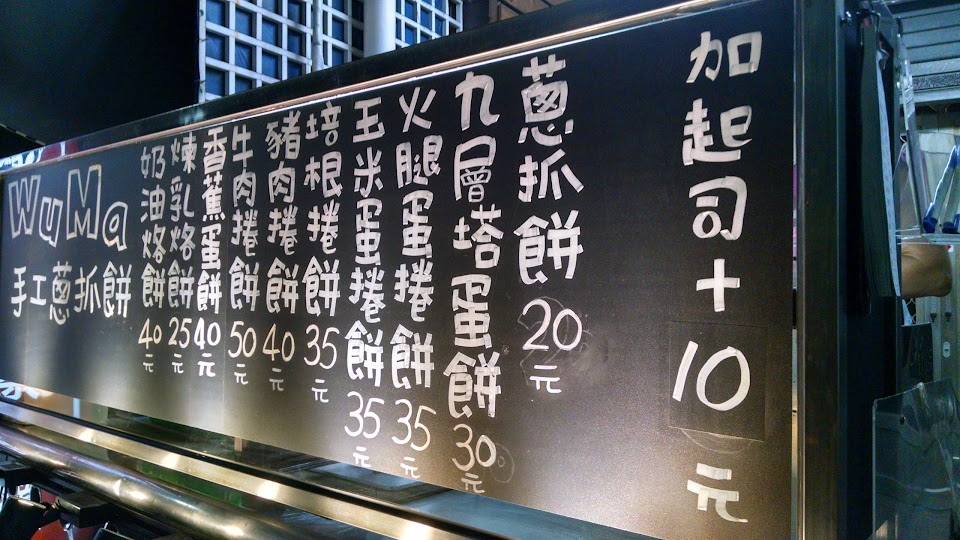 加起司+10元
蔥抓餅20元
九層塔蛋餅30元
火腿蛋捲餅35元
玉米蛋捲餅35元
培根捲餅35元
豬肉捲餅40元
牛肉捲餅50元
香蕉蛋餅40元
煉乳烙餅25元
奶油烙餅40元
WuMa
手工蔥抓餅